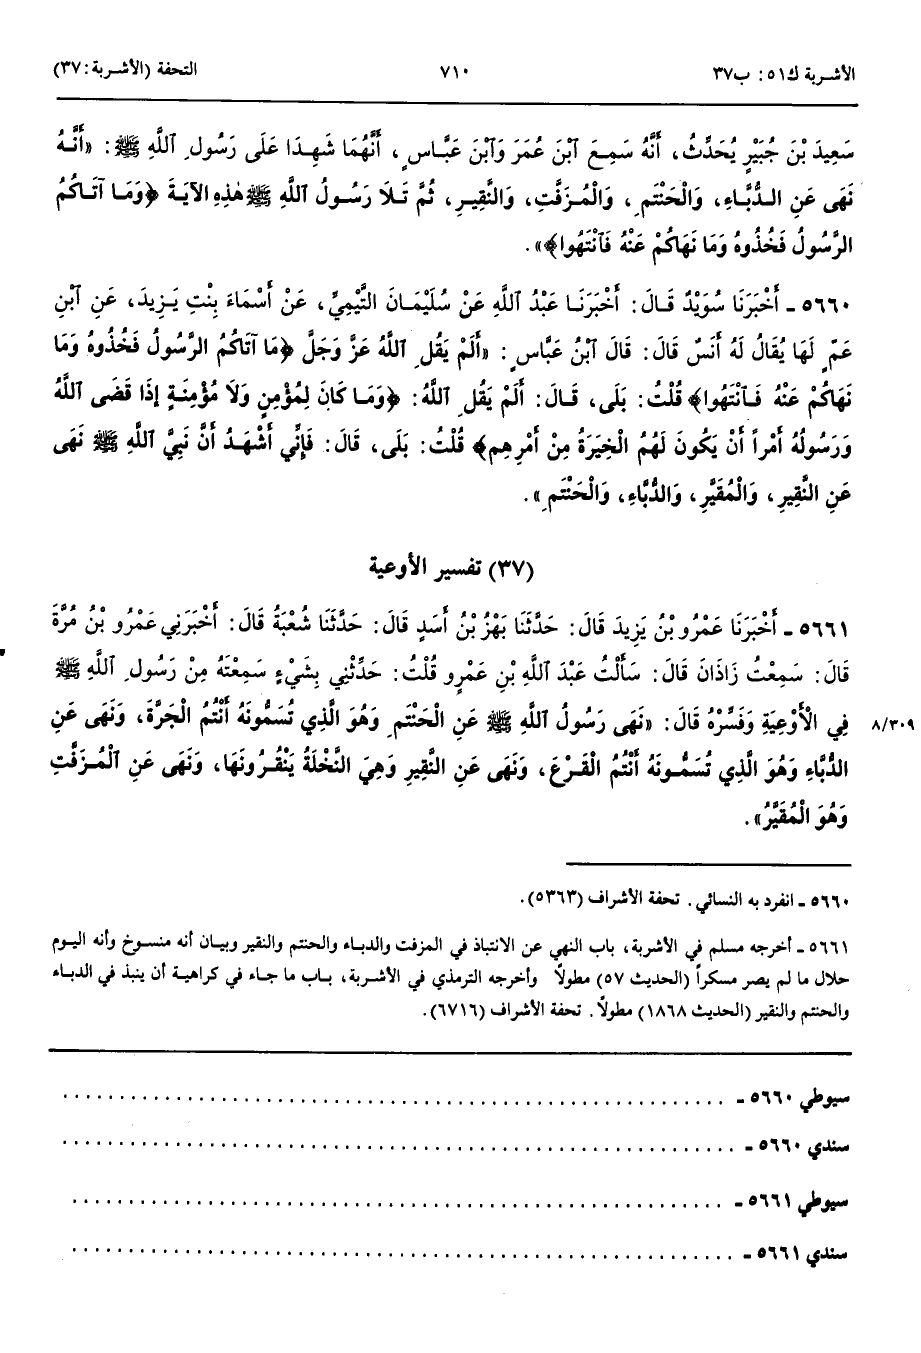 الأشربة ك٥١: ب٣٧ ٧١٠ التحفة (الأشربة: ٣٧)
سَعِيدَ بْنَ جُبَيْرٍ يُحَدِّثُ، أَنَّهُ سَمِعَ ٱبْنَ عُمَرَ وَٱبْنَ عَبَّاسٍ، أَنَّهُمَا شَهِدَا عَلَى رَسُولِ ٱللَّهِ ﷺ: «أَنَّهُ
نَهَى عَنِ الدُّبَّاءِ، وَالْحَنْتَمِ، وَالْمُزَفَّتِ، وَالنَّقِيرِ، ثُمَّ تَلَا رَسُولُ اللَّهِ ﷺ هٰذِهِ الآيَةَ ﴿وَمَا آتَاكُمُ
الرَّسُولُ فَخُذُوهُ وَمَا نَهَاكُمْ عَنْهُ فَٱنْتَهُوا﴾».
٥٦٦٠ ـ أَخْبَرَنَا سُوَيْدٌ قَالَ: أَخْبَرَنَا عَبْدُ اللَّهِ عَنْ سُلَيْمَانَ التَّيْمِيِّ، عَنْ أَسْمَاءَ بِنْتِ يَزِيدَ، عَنِ ٱبْنِ
عَمٍّ لَهَا يُقَالُ لَهُ أَنَسٌ قَالَ: قَالَ ٱبْنُ عَبَّاسٍ: «أَلَمْ يَقُلِ ٱللَّهُ عَزَّ وَجَلَّ ﴿مَا آتَاكُمُ الرَّسُولُ فَخُذُوهُ وَمَا
نَهَاكُمْ عَنْهُ فَٱنْتَهُوا﴾ قُلْتُ: بَلَى، قَالَ: أَلَمْ يَقُلِ ٱللَّهُ: ﴿وَمَا كَانَ لِمُؤْمِنٍ وَلَا مُؤْمِنَةٍ إِذَا قَضَى ٱللَّهُ
وَرَسُولُهُ أَمْراً أَنْ يَكُونَ لَهُمُ الْخِيَرَةُ مِنْ أَمْرِهِم﴾ قُلْتُ: بَلَى، قَالَ: فَإِنِّي أَشْهَدُ أَنَّ نَبِيَّ ٱللَّهِ ﷺ نَهَى
عَنِ النَّقِيرِ، وَالْمُقَيَّرِ، وَالدُّبَّاءِ، وَالْحَنْتَمِ».
(٣٧) تفسير الأوعية
٥٦٦١ ـ أَخْبَرَنَا عَمْرُو بْنُ يَزِيدَ قَالَ: حَدَّثَنَا بَهْزُ بْنُ أَسَدٍ قَالَ: حَدَّثَنَا شُعْبَةُ قَالَ: أَخْبَرَنِي عَمْرُو بْنُ مُرَّةَ
قَالَ: سَمِعْتُ زَاذَانَ قَالَ: سَأَلْتُ عَبْدَ اللَّهِ بْنِ عَمْرٍو قُلْتُ: حَدِّثْنِي بِشَيْءٍ سَمِعْتَهُ مِنْ رَسُولِ ٱللَّهِ ﷺ
فِي الْأَوْعِيَةِ وَفَسِّرْهُ قَالَ: «نَهَى رَسُولُ اللَّهِ ﷺ عَنِ الْحَنْتَمِ وَهُوَ الَّذِي تُسَمُّونَهُ أَنْتُمُ الْجَرَّةَ، وَنَهَى عَنِ ٨/٣٠٩
الدُّبَّاءِ وَهُوَ الَّذِي تُسَمُّونَهُ أَنْتُمُ الْقَرْعَ، وَنَهَى عَنِ النَّقِيرِ وَهِيَ النَّخْلَةُ يَنْقُرُونَهَا، وَنَهَى عَنِ الْمُزَفَّتِ
وَهُوَ الْمُقَيَّرُ».
٥٦٦٠ ـ انفرد به النسائي. تحفة الأشراف (٥٣٦٣).
٥٦٦١ ـ أخرجه مسلم في الأشربة، باب النهي عن الانتباذ في المزفت والدباء والحنتم والنقير وبيان أنه منسوخ وأنه اليوم
حلال ما لم يصر مسكراً (الحديث ٥٧) مطولاً وأخرجه الترمذي في الأشربة، باب ما جاء في كراهية أن ينبذ في الدباء
والحنتم والنقير (الحديث ١٨٦٨) مطولاً. تحفة الأشراف (٦٧١٦).
سيوطي ٥٦٦٠ ـ ..........................................................
سندي ٥٦٦٠ ـ ..........................................................
سيوطي ٥٦٦١ ـ ..........................................................
سندي ٥٦٦١ ـ ..........................................................